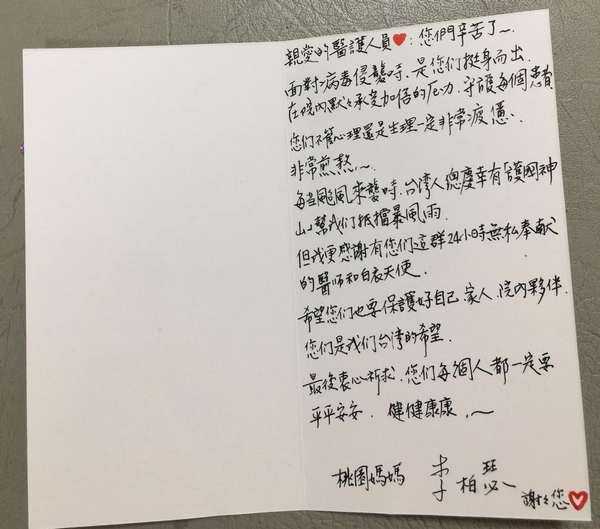 親愛的醫護人員❤:您們辛苦了~
面對病毒侵襲時,是您們挺身而出
在院內默々承受加倍的壓力,守護每個患者
您們不管心理還是生理一定非常疲憊、
非常煎熬~
每當颱風來襲時,台湾人總慶幸有「護国神
山」幫我們抵擋暴風雨.
但我更感謝有您們這群24小時無私奉献
的醫師和白衣天使.
希望您們也要保護好自己.家人.院內夥伴.
您們是我们台湾的希望.
最後衷心祈求.您們每個人都一定要
平平安安.健健康康.~
桃園媽媽 李柏瑟
謝々您❤